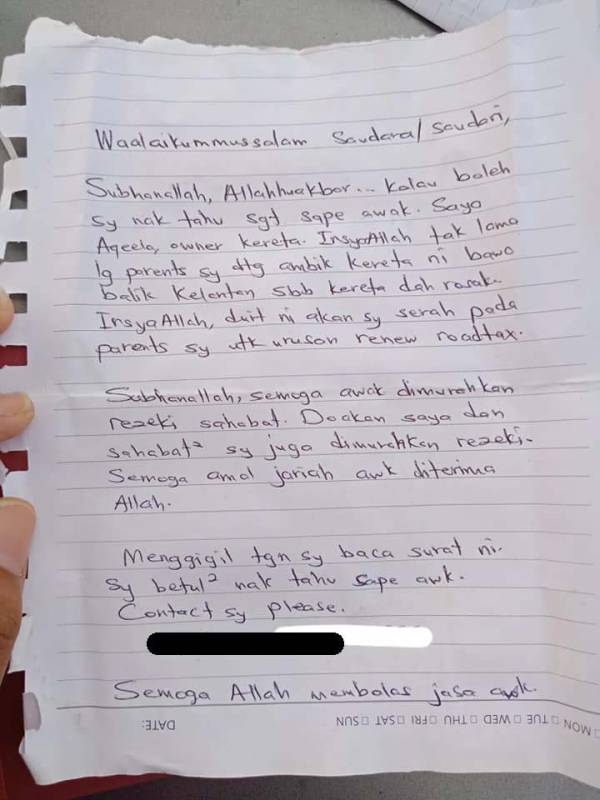 Waalaikummussalam Saudara/Saudari,
Subhanallah, Allahhuakbar... Kalau boleh
sy nak tahu sgt sape awak. Saya
Aqeela, owner kereta. InsyaAllah tak lama
lg parents sy dtg ambik kereta ni bawa
balik Kelantan sbb kereta dah rosak.
InsyaAllah, duit ni akan sy serah pada
parents sy utk uruskan renew roadtax.
Subhanallah, semoga awak dimurahkan
rezeki sahabat. Doakan saya dan
sahabat² sy juga dimurahkan rezeki.
Semoga amal jariah awk diterima
Allah.
Menggigil tgn sy baca surat ni.
Sy betul² nak tahu sape awk.
Contact sy please.
Semoga Allah membalas jasa awk.
DATE:
MON TUE WED THU FRI SAT SUN